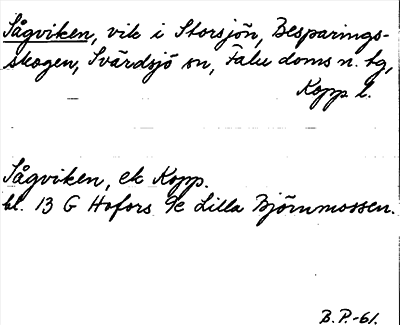 Sågviken, vik i Storsjön, Besparings-
skogen, Svärdsjö sn, Falu doms n. tg,
Kopp l.
Sågviken, ek Kopp.
bl. 13 G Hofors 9c Lilla Björnmossen.
B.P.-61.